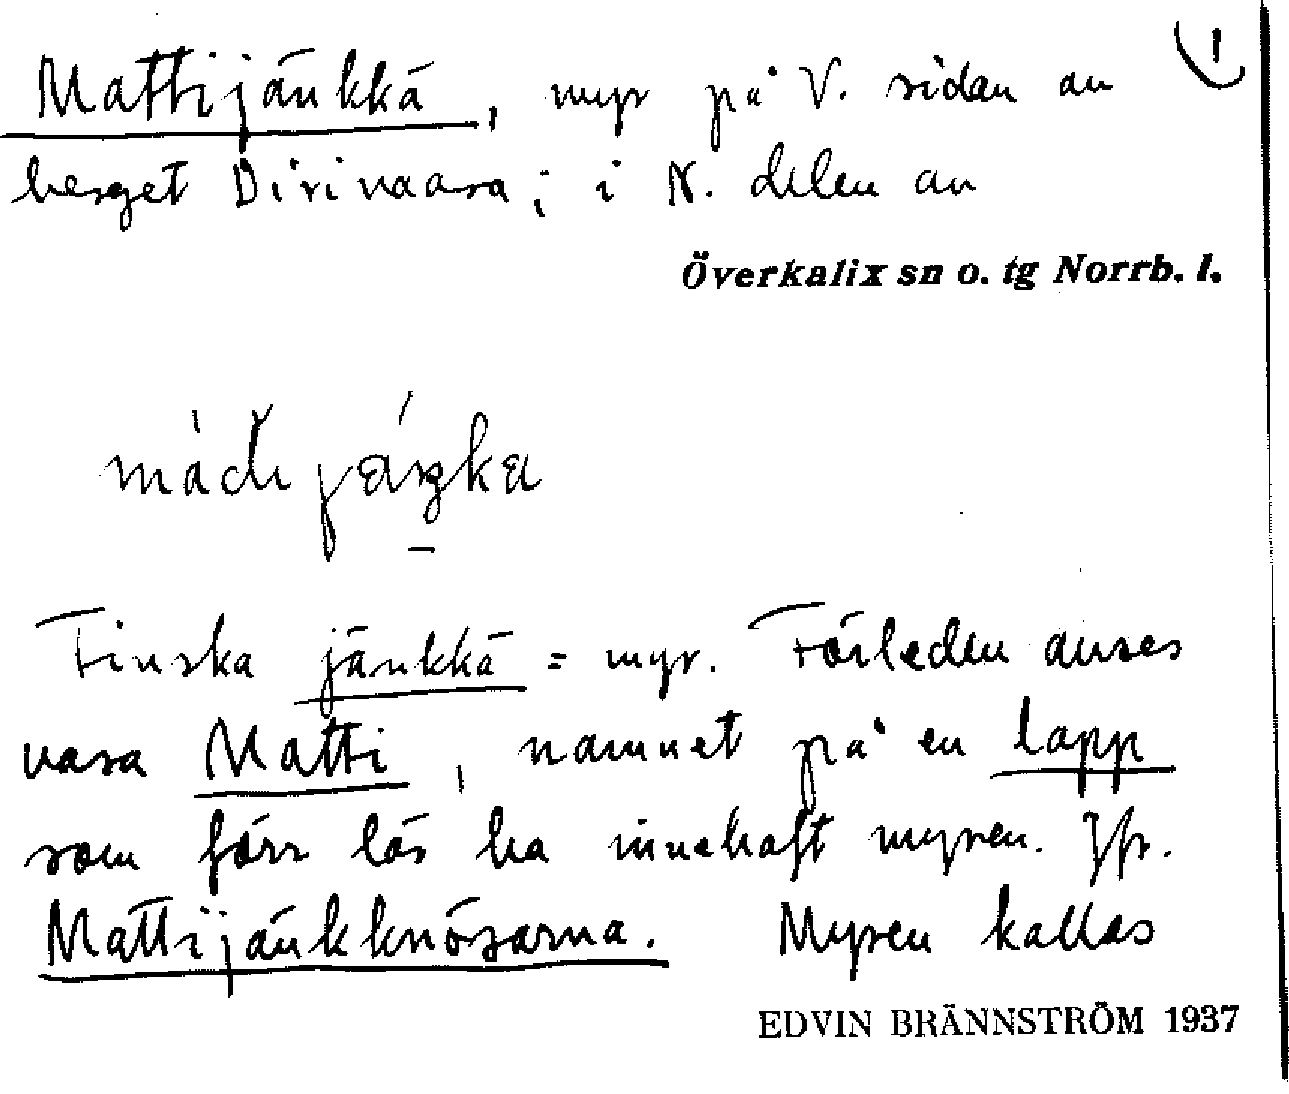 Mattijänkkä, myr på V. sidan av 1
berget Dirivaara; i N. delen av
Överkalix sn o. tg Norrb. l.
Finska jänkkä = myr. Förleden anses
vara Matti, namnet på en lapp
som förr lär ha innehaft myren. Jfr.
Mattijänkknösarna. Myren kallas
EDVIN BRÄNNSTRÖM 1937